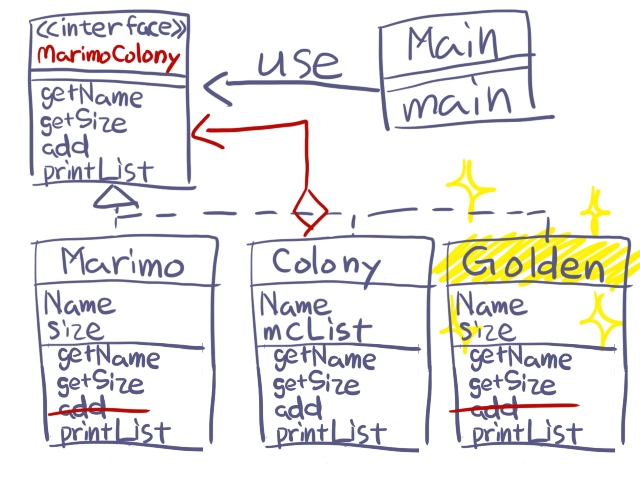 <<interface>>
MarimoColony
getName
getSize
add
printList
use
Main
main
Marimo
Name
size
getName
getSize
add
printList
Colony
Name
mcList
getName
getSize
add
printList
Golden
Name
size
getName
getSize
add
printList